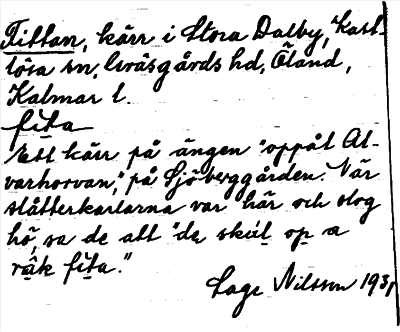 Fittan, kärr i Stora Dalby, Kast-
lösa sn, Gräsgårds hd, Öland,
Kalmar l.
fita
Ett kärr på ängen "oppåt Al-
varhorvan," på Sjöberggården. När
slåtterkarlarna var här och slog
hö, sa de att "de skúl op a
räk fita."
Lage Nilsson 193